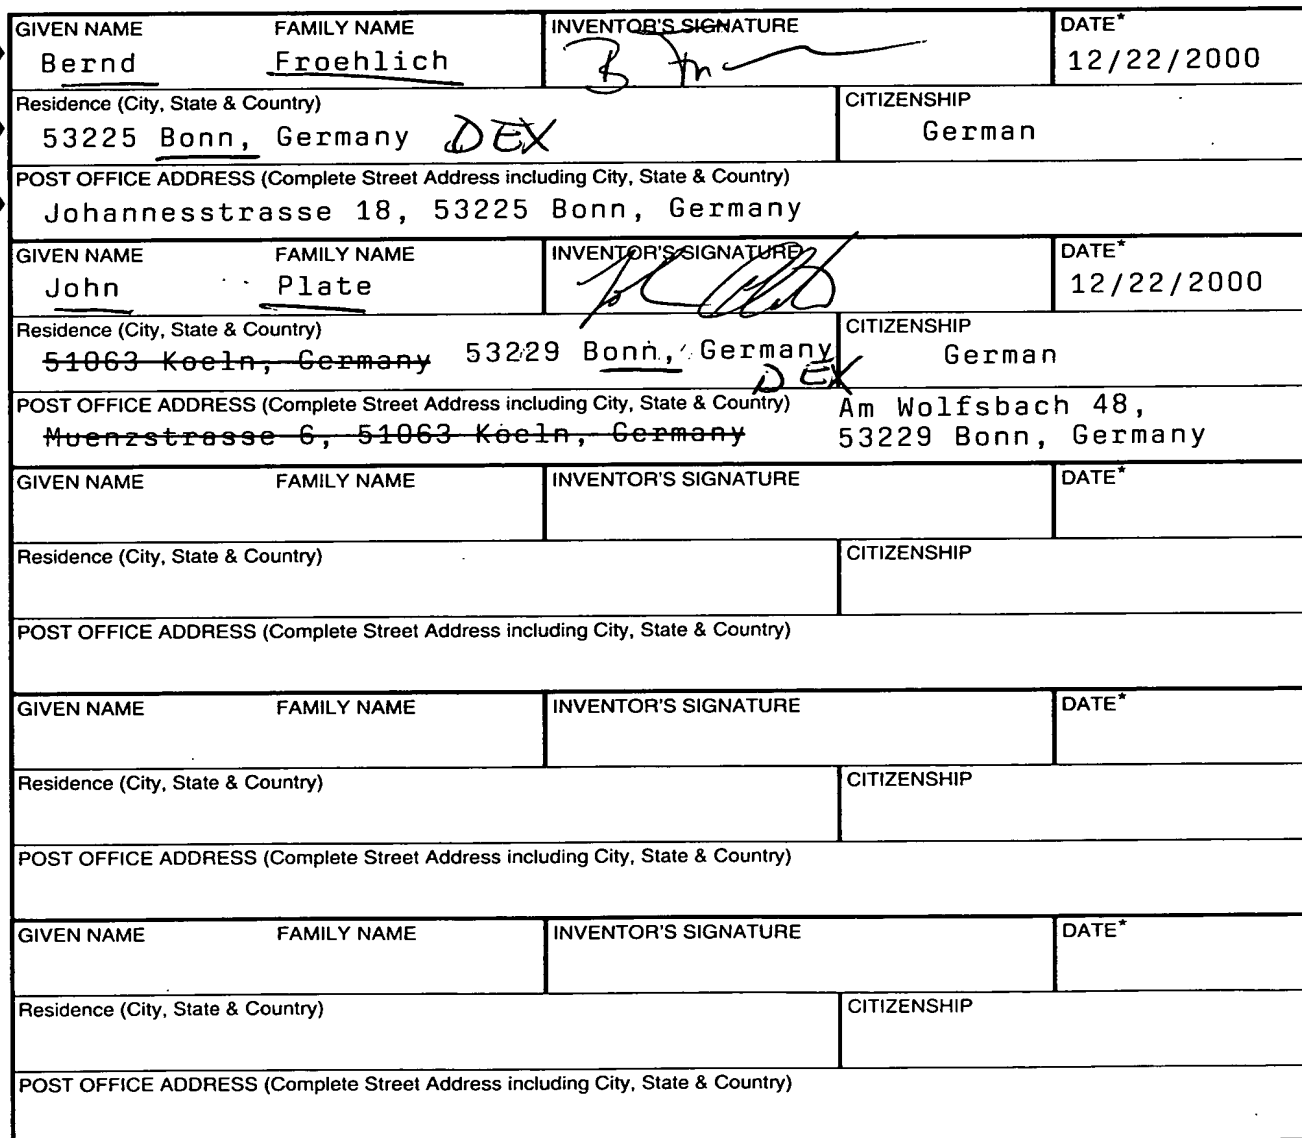 GIVEN NAME FAMILY NAME INVENTOR'S SIGNATURE DATE*
Bernd Froehlich 12/22/2000
Residence (City, State & Country) CITIZENSHIP
53225 Bonn, Germany DEX German
POST OFFICE ADDRESS (Complete Street Address including City, State & Country)
Johannesstrasse 18, 53225 Bonn, Germany
GIVEN NAME FAMILY NAME INVENTOR'S SIGNATURE DATE*
John Plate 12/22/2000
Residence (City, State & Country) CITIZENSHIP
51063 Koeln, Germany 53229 Bonn, Germany German
DEX
POST OFFICE ADDRESS (Complete Street Address including City, State & Country) Am Wolfsbach 48,
Muenzstrasse 6, 51063 Koeln, Germany 53229 Bonn, Germany
GIVEN NAME FAMILY NAME INVENTOR'S SIGNATURE DATE*
Residence (City, State & Country) CITIZENSHIP
POST OFFICE ADDRESS (Complete Street Address including City, State & Country)
GIVEN NAME FAMILY NAME INVENTOR'S SIGNATURE DATE*
Residence (City, State & Country) CITIZENSHIP
POST OFFICE ADDRESS (Complete Street Address including City, State & Country)
GIVEN NAME FAMILY NAME INVENTOR'S SIGNATURE DATE*
Residence (City, State & Country) CITIZENSHIP
POST OFFICE ADDRESS (Complete Street Address including City, State & Country)